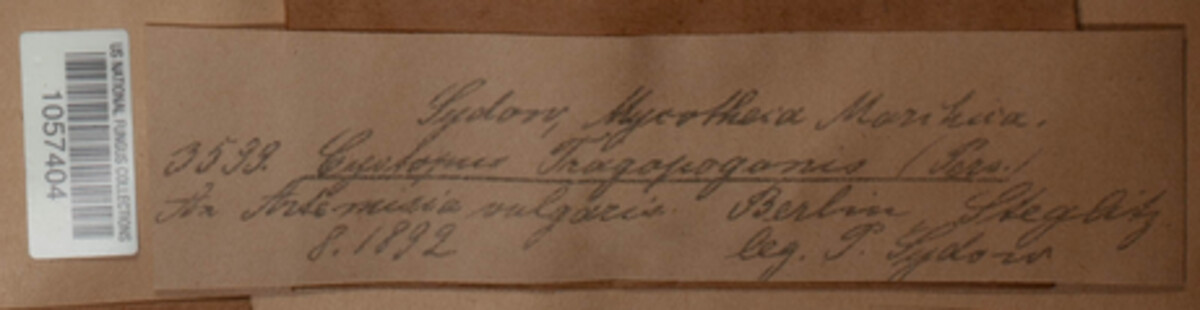 US NATIONAL FUNGUS COLLECTIONS
1057404
Sydow, Mycotheca Marchica.
Cystopus Tragopogonis (Pers.)
An Artemisia vulgaris. Berlin, Steglitz
8. 1892 leg. P. Sydow